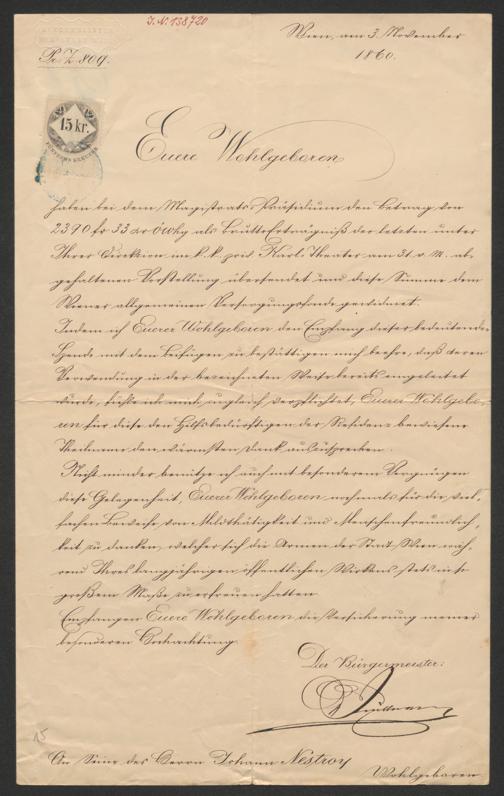 J.N. 138720
Wien, am 3. November
1860.
Pr. Z. 809.
15 kr.
FÜNFZEHN KREUZER
Euere Wohlgeboren
haben bei dem Magistrats Präsidium den Betrag von
2390 fr 33 als Brutto Erträgniß der letzten unter
Ihrer Direktion im k. k. priv. Karl Theater am 31. v. M. ab-
gehaltenen Vorstellung übersendet und diese Summe dem
Wiener allgemeinen Versorgungsfonde gewidmet.
Indem ich Euerer Wohlgeboren den Empfang dieser bedeutenden
Spende mit dem Beifügen zu bestättigen mich beehre, daß deren
Verwendung in der bezeichneten Weise bereits eingeleitet
wurde, fühle ich mich zugleich verpflichtet, Euerer Wohlgebo-
ren für diese den Hilfsbedürftigen der Residenz bewiesene
Theilnahme den wärmsten Dank auszusprechen.
Nicht minder benütze ich auch mit besonderem Vergnügen
diese Gelegenheit, Euerer Wohlgeboren nochmals für die viel-
fachen Beweise von Mildthätigkeit und Menschenfreundlich-
keit zu danken, welcher sich die Armen der Stadt Wien wäh-
rend Ihres langjährigen öffentlichen Wirkens stets in so
großem Maße zu erfreuen hatten.
Empfangen Euere Wohlgeboren die Versicherung meiner
besonderen Hochachtung
Der Bürgermeister:
An Seine des Herrn Johann Nestroy
Wohlgeboren
15